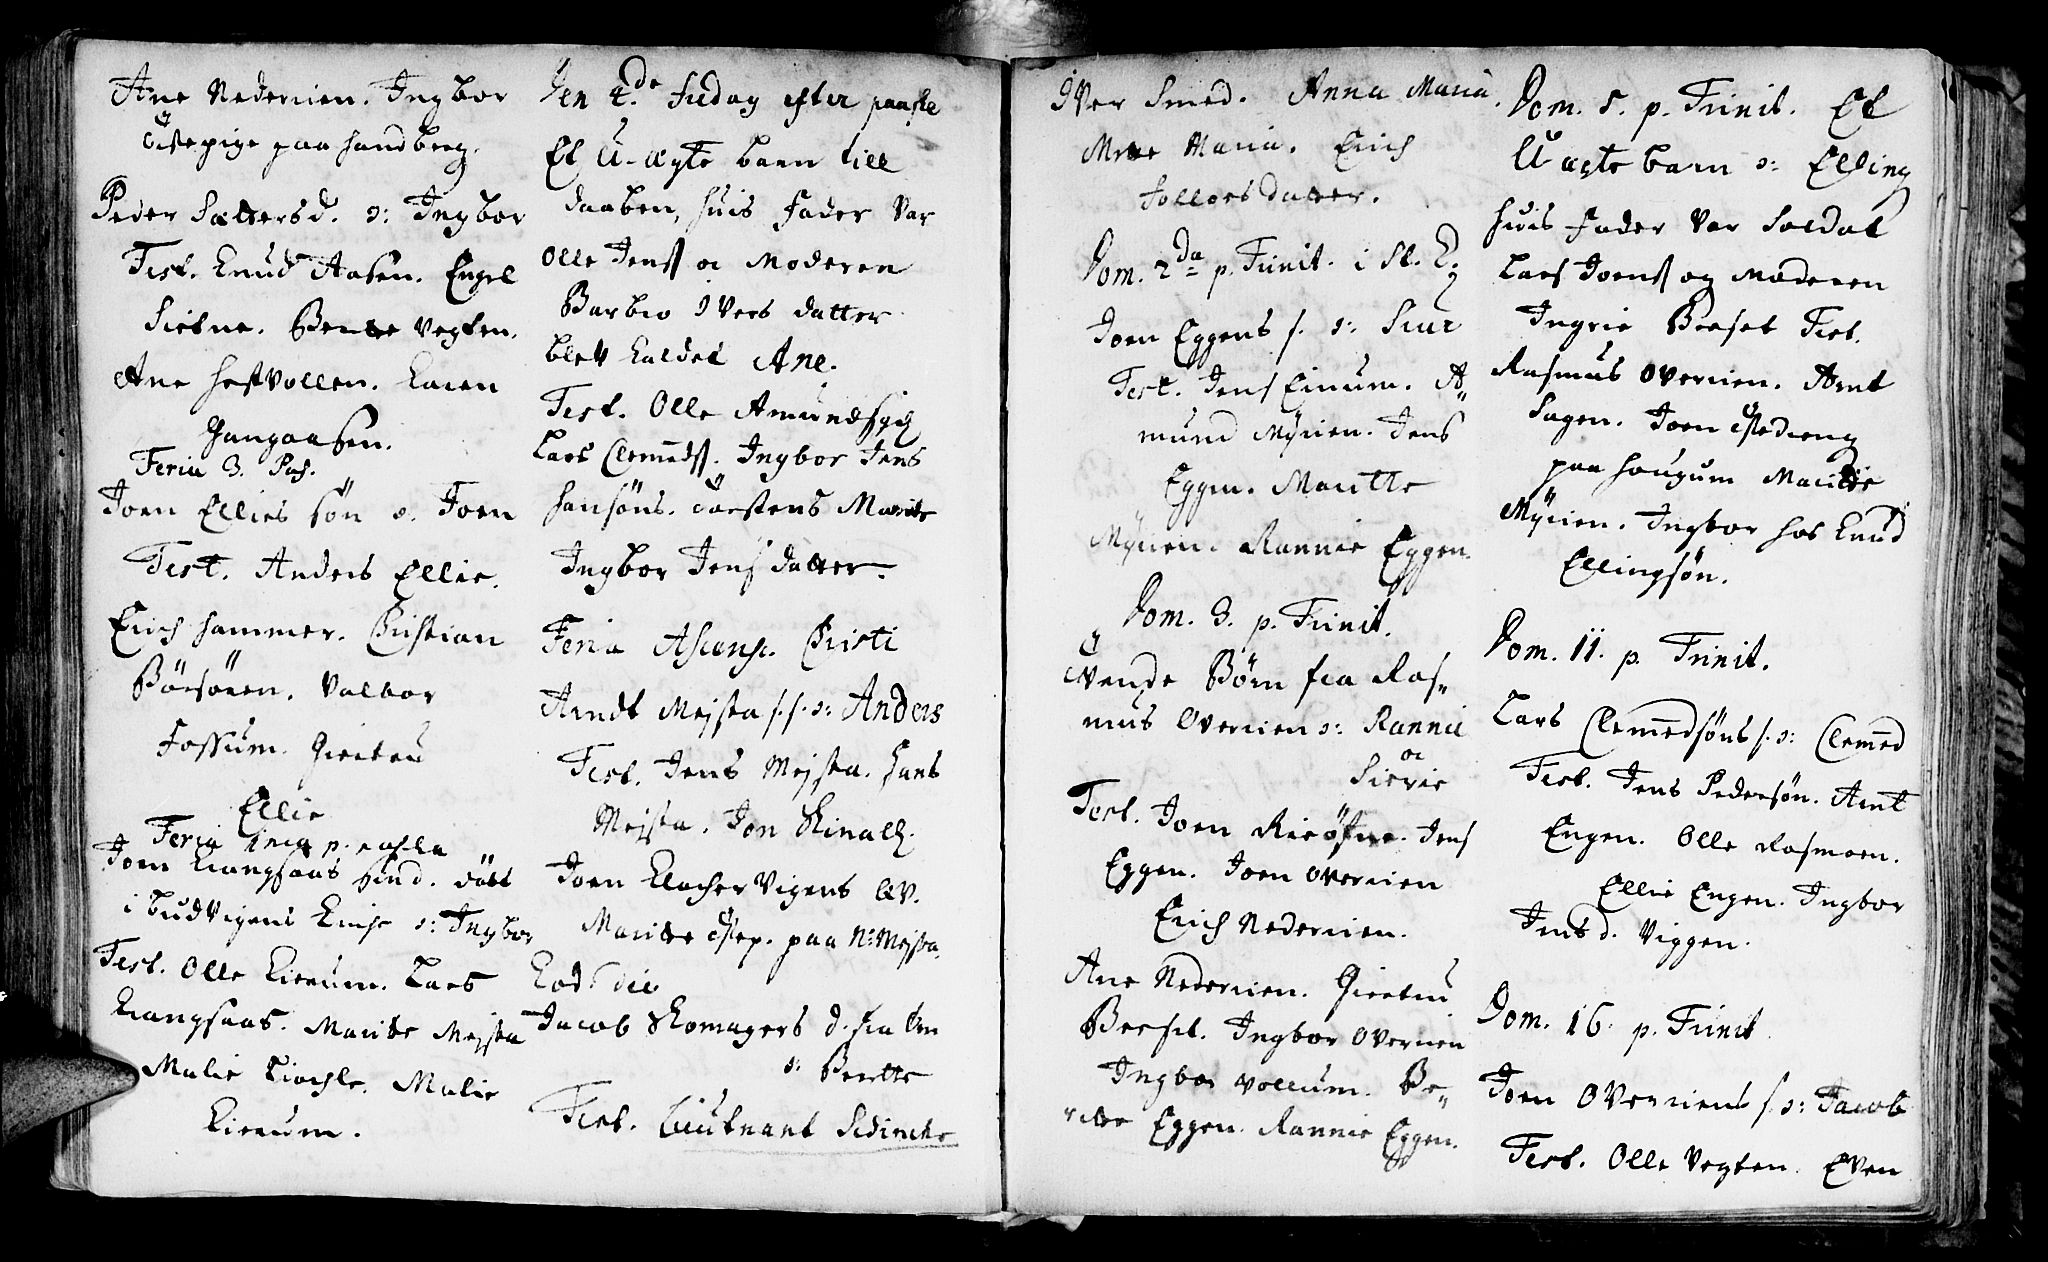 Ane Nederrien. Ingbor
Tiæstepige paa Sandberg.
Peder Sættersd. d: Ingbor
Test. Knud Aasen. Engel
Sietne. Berette Vegten.
Ane Hestvollen. Karen
Gangaasen.
Feria 3. Pas.
Joen Ellies søn d. Joen
Test. Anders Ellie.
Erich Hammer. Christian
Børsøren. Valbor
Fossum. Giertru
Ellie
Feria p. pascha
Joen Krangsaas døbt
i Budvigens Kirche d: Ingbor
Test. Olle Kierum. Lars
Krangsaas. Maritte Mejsta
Malie Kiøchle. Malie
Kierum.
Den 4de Fredag efter paaske
Et U-ægte barn till
daaben, huis Fader var
Olle Jenss oc Moderen
Barbro Ivers datter
blev kaldet Ane.
Test. Olle Amundss
Lars Clemedss. Ingbor Jens
Hansøns. Torstens Marite
Ingbor Jens datter.
Feria Ascens. Christi
Arndt Mejsta s. s. d: Anders
Test. Jens Mejsta. Hans
Mejsta. Jon
Joen Klocher Vigens qv.
Maritte tiestep. paa N: Mejsta.
Jacob Skomagers d. fra
d: Berette
Test. Lieutnant
Iver Smed. Anna Maria.
Mette Maria. Erich
Tollorsdatter.
Dom. 2da p. Trinit. i St.
Joen Eggens s. d: Siur
Test. Jens Einum. A-
mund Myrien. Jens
Eggen. Maritte
Myrien. Rannie Eggen.
Dom. 3. p. Trinit.
Tvende Børn fra Ras-
mus Overrien d: Rannie
oc
Sierie
Test. Joen Jens
Eggen. Joen Overrien
Erich Nederrien.
Ane Nederrien. Giertru
Berset. Ingbor Overrien
Ingbor Vollum. Be-
ritte Eggen. Rannie Eggen.
Dom. 5. p. Trinit. Et
Uægte barn d: Elling
huis Fader var Soldat
Lars Joenss og Moderen
Ingrie Berset Test.
Rasmus Overrien. Arnt
Sagen. Joen tiestedreng
paa Hougum Maritte
Myrien. Ingbor hos Knud
Ellingsøn.
Dom. 11. p. Trinit.
Lars Clemedsøns s. d: Clemed
Test. Jens Pedersøn. Arnt
Engen. Olle Rasmoen.
Ellie Engen. Ingbor
Jensd. Viggen.
Dom. 16. p. Trinit.
Joen Overriens s. d: Jacob
Test. Olle Vegten. Even